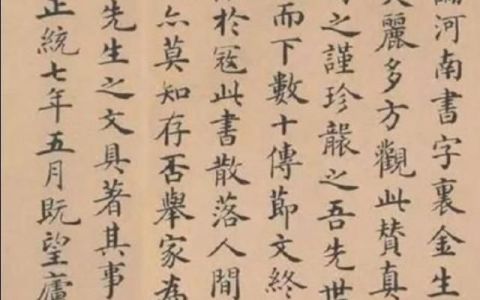 河南書字裏金生
麗多方觀此賛真
之謹珍襲之吾先世
而下數十傳節文終
於寇此書散落人間
亦莫知存否舉家為
先生之文具著其事
正統七年五月既望廬